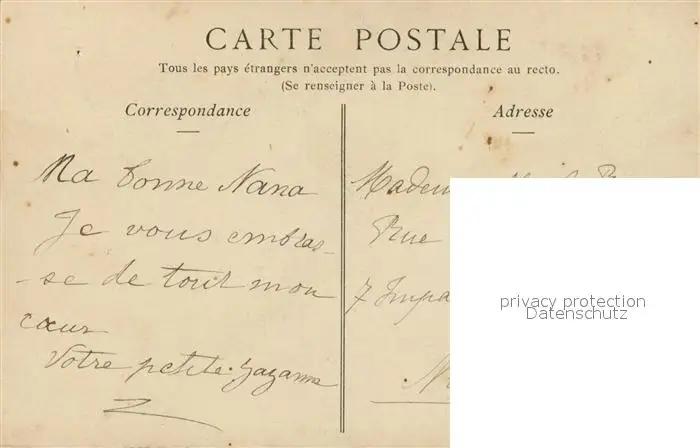 CARTE POSTALE
Tous les pays étrangers n'acceptent pas la correspondance au recto.
(Se renseigner à la Poste).
Correspondance
Adresse
Ma bonne Nana
Je vous embras-
-se de tout mon
cœur
Votre petite
Madem
Rue
7 Impa
privacy protection
Datenschutz